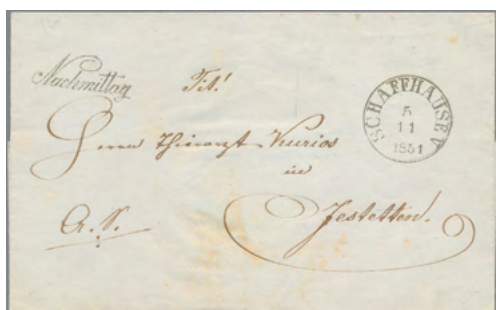 Nachmittag
Tit!
SCHAFFHAUSEN
5
11
1851
Herrn Thierarzt Kurios
in
Jestetten.
A. S.